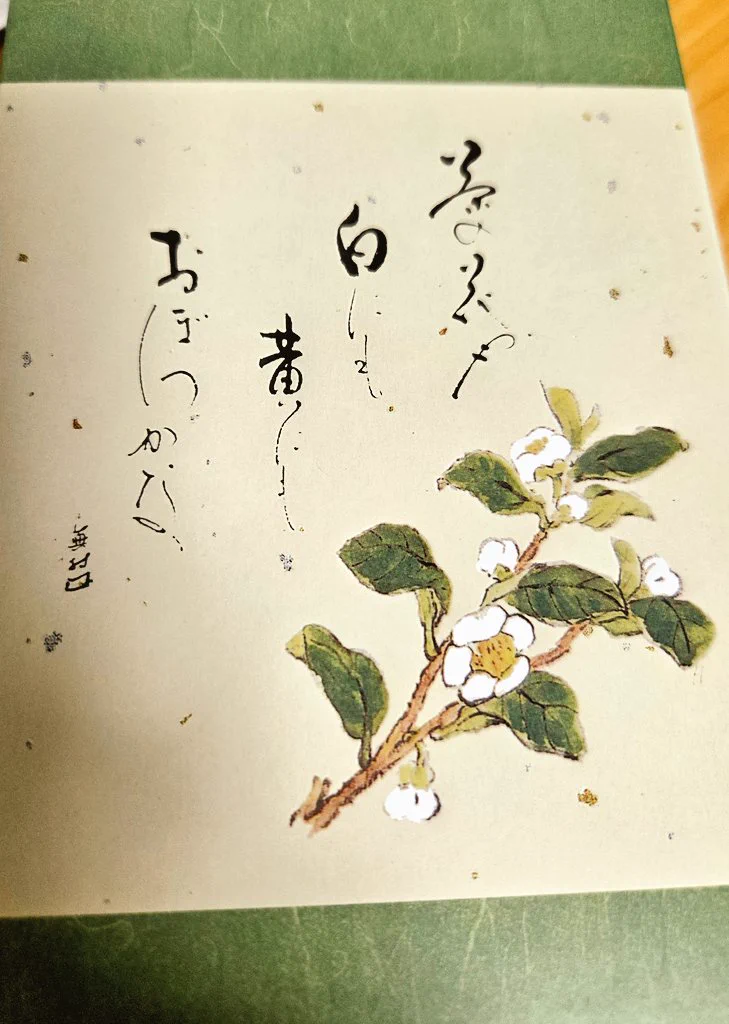 茶の花や
白にも
黄にも
おぼつかな
蕪村